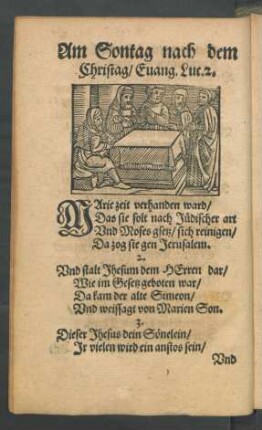 Am Sontag nach dem
Christag/ Euang. Luc. 2.
MArie zeit verhanden ward/
Das sie solt nach Jüdischer art
Vnd Moses gsetz/ sich reinigen/
Da zog sie gen Jerusalem.
2.
Vnd stalt Jhesum dem HErren dar/
Wie im Gesetz geboten war/
Da kam der alte Simeon/
Vnd weissagt von Marien Son.
3.
Dieser Jhesus dein Sönelein/
Jr vielen wird ein anstos sein/
Vnd